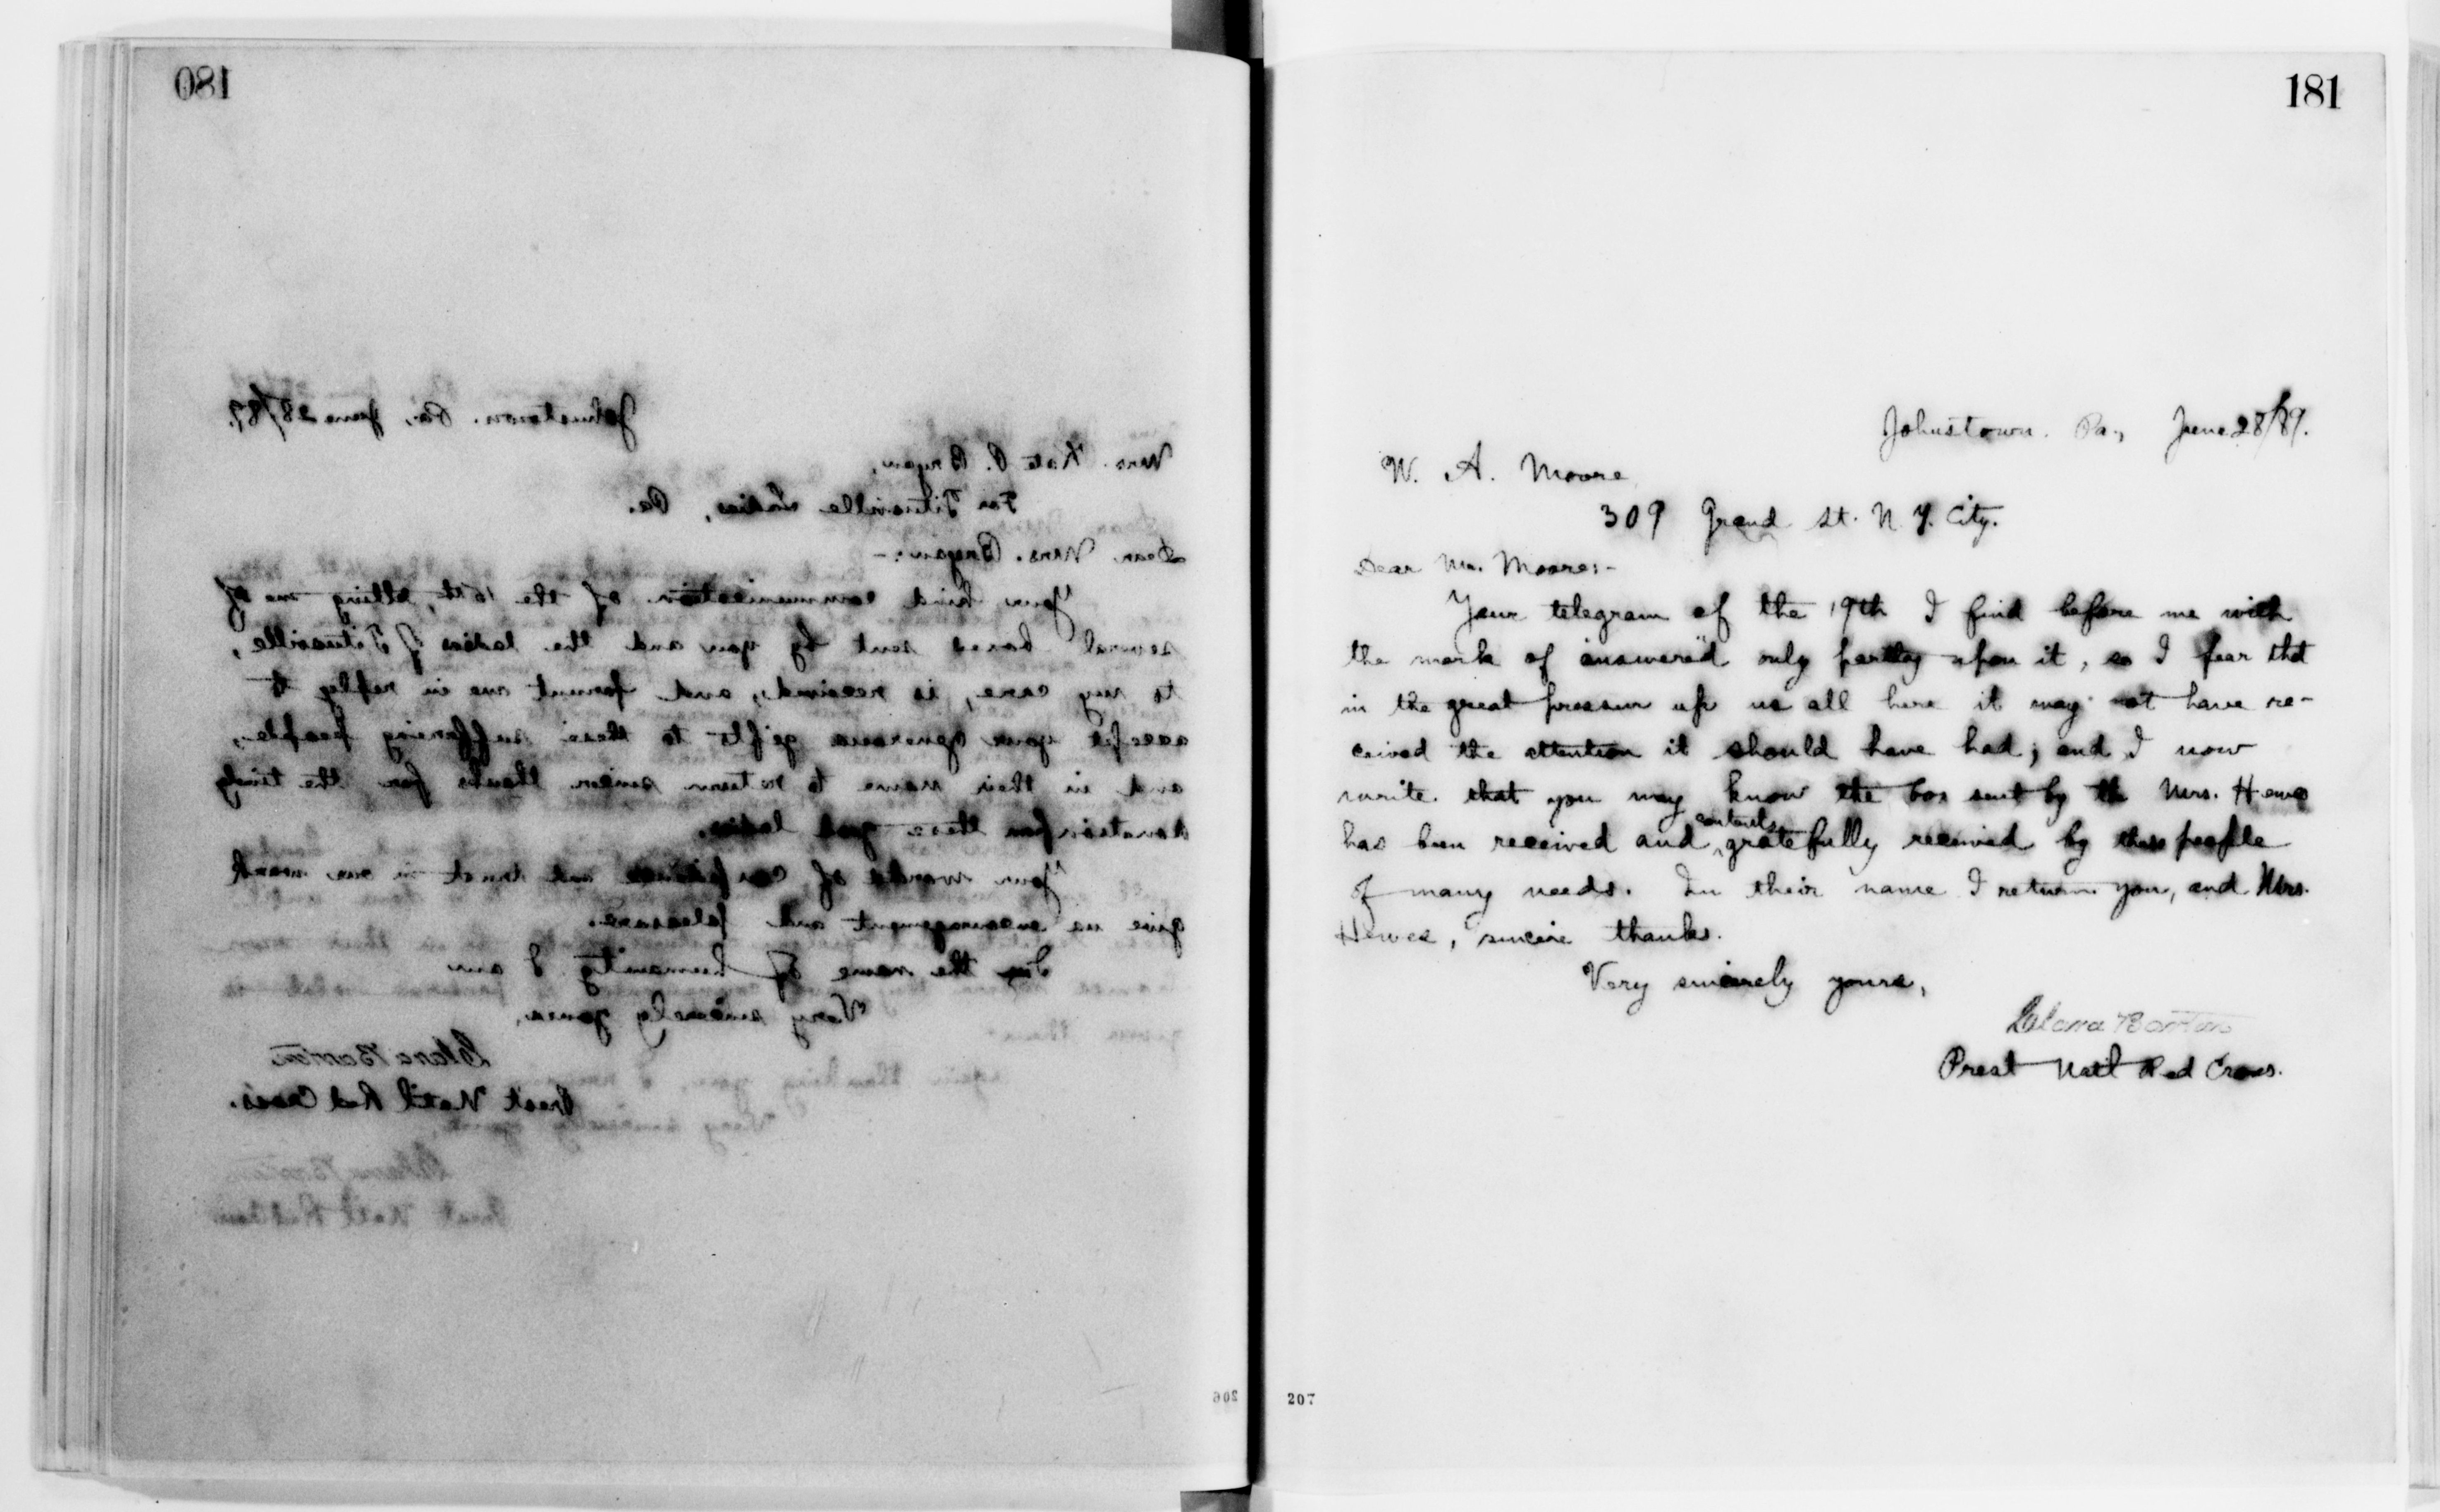 180
Johnstown. Pa. June 28/89.
Mrs. Kate P. Bryan,
For Titusville Ladies, Pa.
Dear Mrs. Bryan:-
Your kind communication of the 15th, telling me of
several boxes sent by you and the ladies of Titusville,
to my care, is received, and, permit me in reply to
accept your generous gifts to these suffering people,
and in their name to return sincere thanks for the timely
donation from these good ladies.
Your words of confidence and trust in our work
give us encouragement and pleasure.
In the name of humanity I am
Very sincerely yours,
Clara Barton
Prest Natl Red Cross.
again thanking you, I
Very sincerely yours,
Clara Barton
Prest Natl Red Cross
206
181
Johnstown. Pa., June 28/89.
W. A. Moore
309 Grand St. N. Y. City.
Dear Mr. Moore:-
Your telegram of the 19th I find before me with
the mark of "answered" only partly upon it, so I fear that
in the great pressure up us all here it may not have re-
ceived the attention it should have had; and I now
write that you may know the box sent by the Mrs. Hewes
has been received and contents gratefully received by these people
of many needs. In their name I return you, and Mrs.
Hewes, sincere thanks.
Very sincerely yours,
Clara Barton
Prest Natl Red Cross.
207